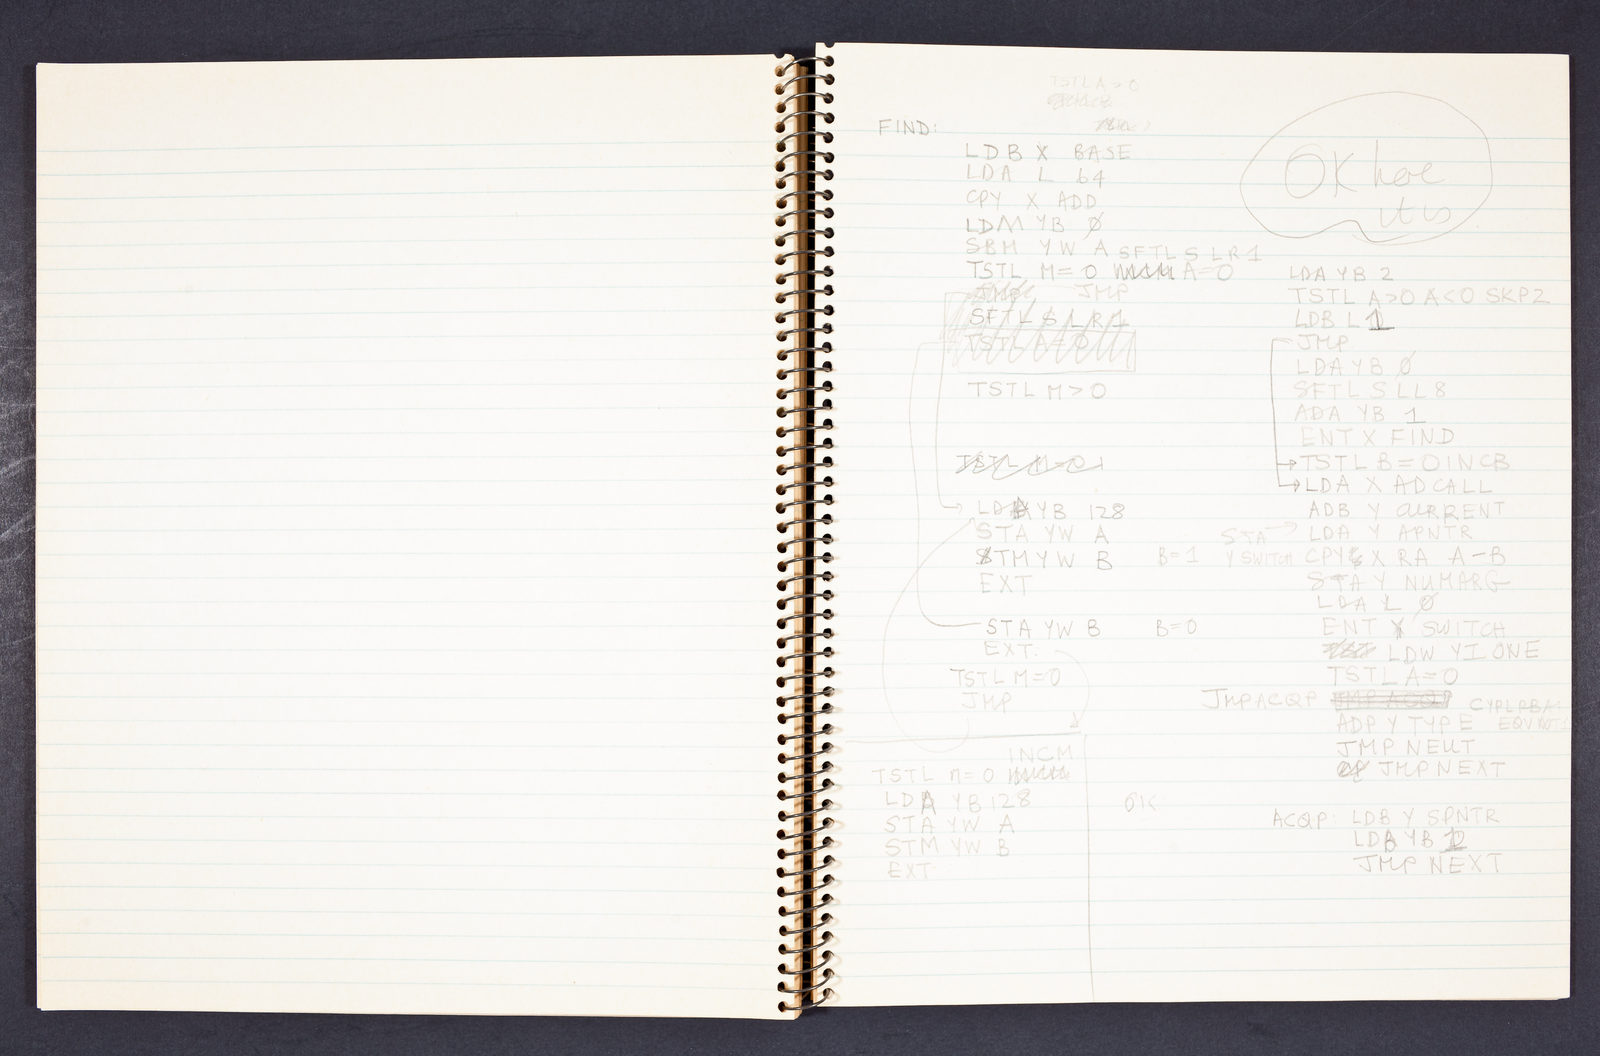 TSTL A > 0
FIND:
LDB X BASE
LDA L 64
CPY X ADD
LDM YB Ø
SBM YW A SFTL S LR 1
TSTL M = 0 A = 0
JMP JMP
SFTL S LR 1
TSTL A = 0
TSTL M > 0
TSTL M = 0
LDA YB 128
STA YW A
STM YW B B = 1
EXT
STA YW B B = 0
EXT.
TSTL M = 0
JMP
INCM
TSTL M = 0
LDA YB 128
STA YW A
STM YW B
EXT
OK
OK here
it is
LDA YB 2
TSTL A>0 A<0 SKP2
LDB L 1
JMP
LDA YB Ø
SFTL S LL 8
ADA YB 1
ENT X FIND
TSTL B = 0 INCB
LDA X ADCALL
ADB Y CURRENT
STA LDA Y APNTR
Y SWITCH CPY X RA A-B
STA Y NUMARG
LDA L Ø
ENT X SWITCH
LDW YI ONE
TSTL A = 0
JMP ACQP JMP ACQP
ADP Y TYPE
JMP NEUT
JMP NEXT
ACQP: LDB Y SPNTR
LDB YB 2
JMP NEXT